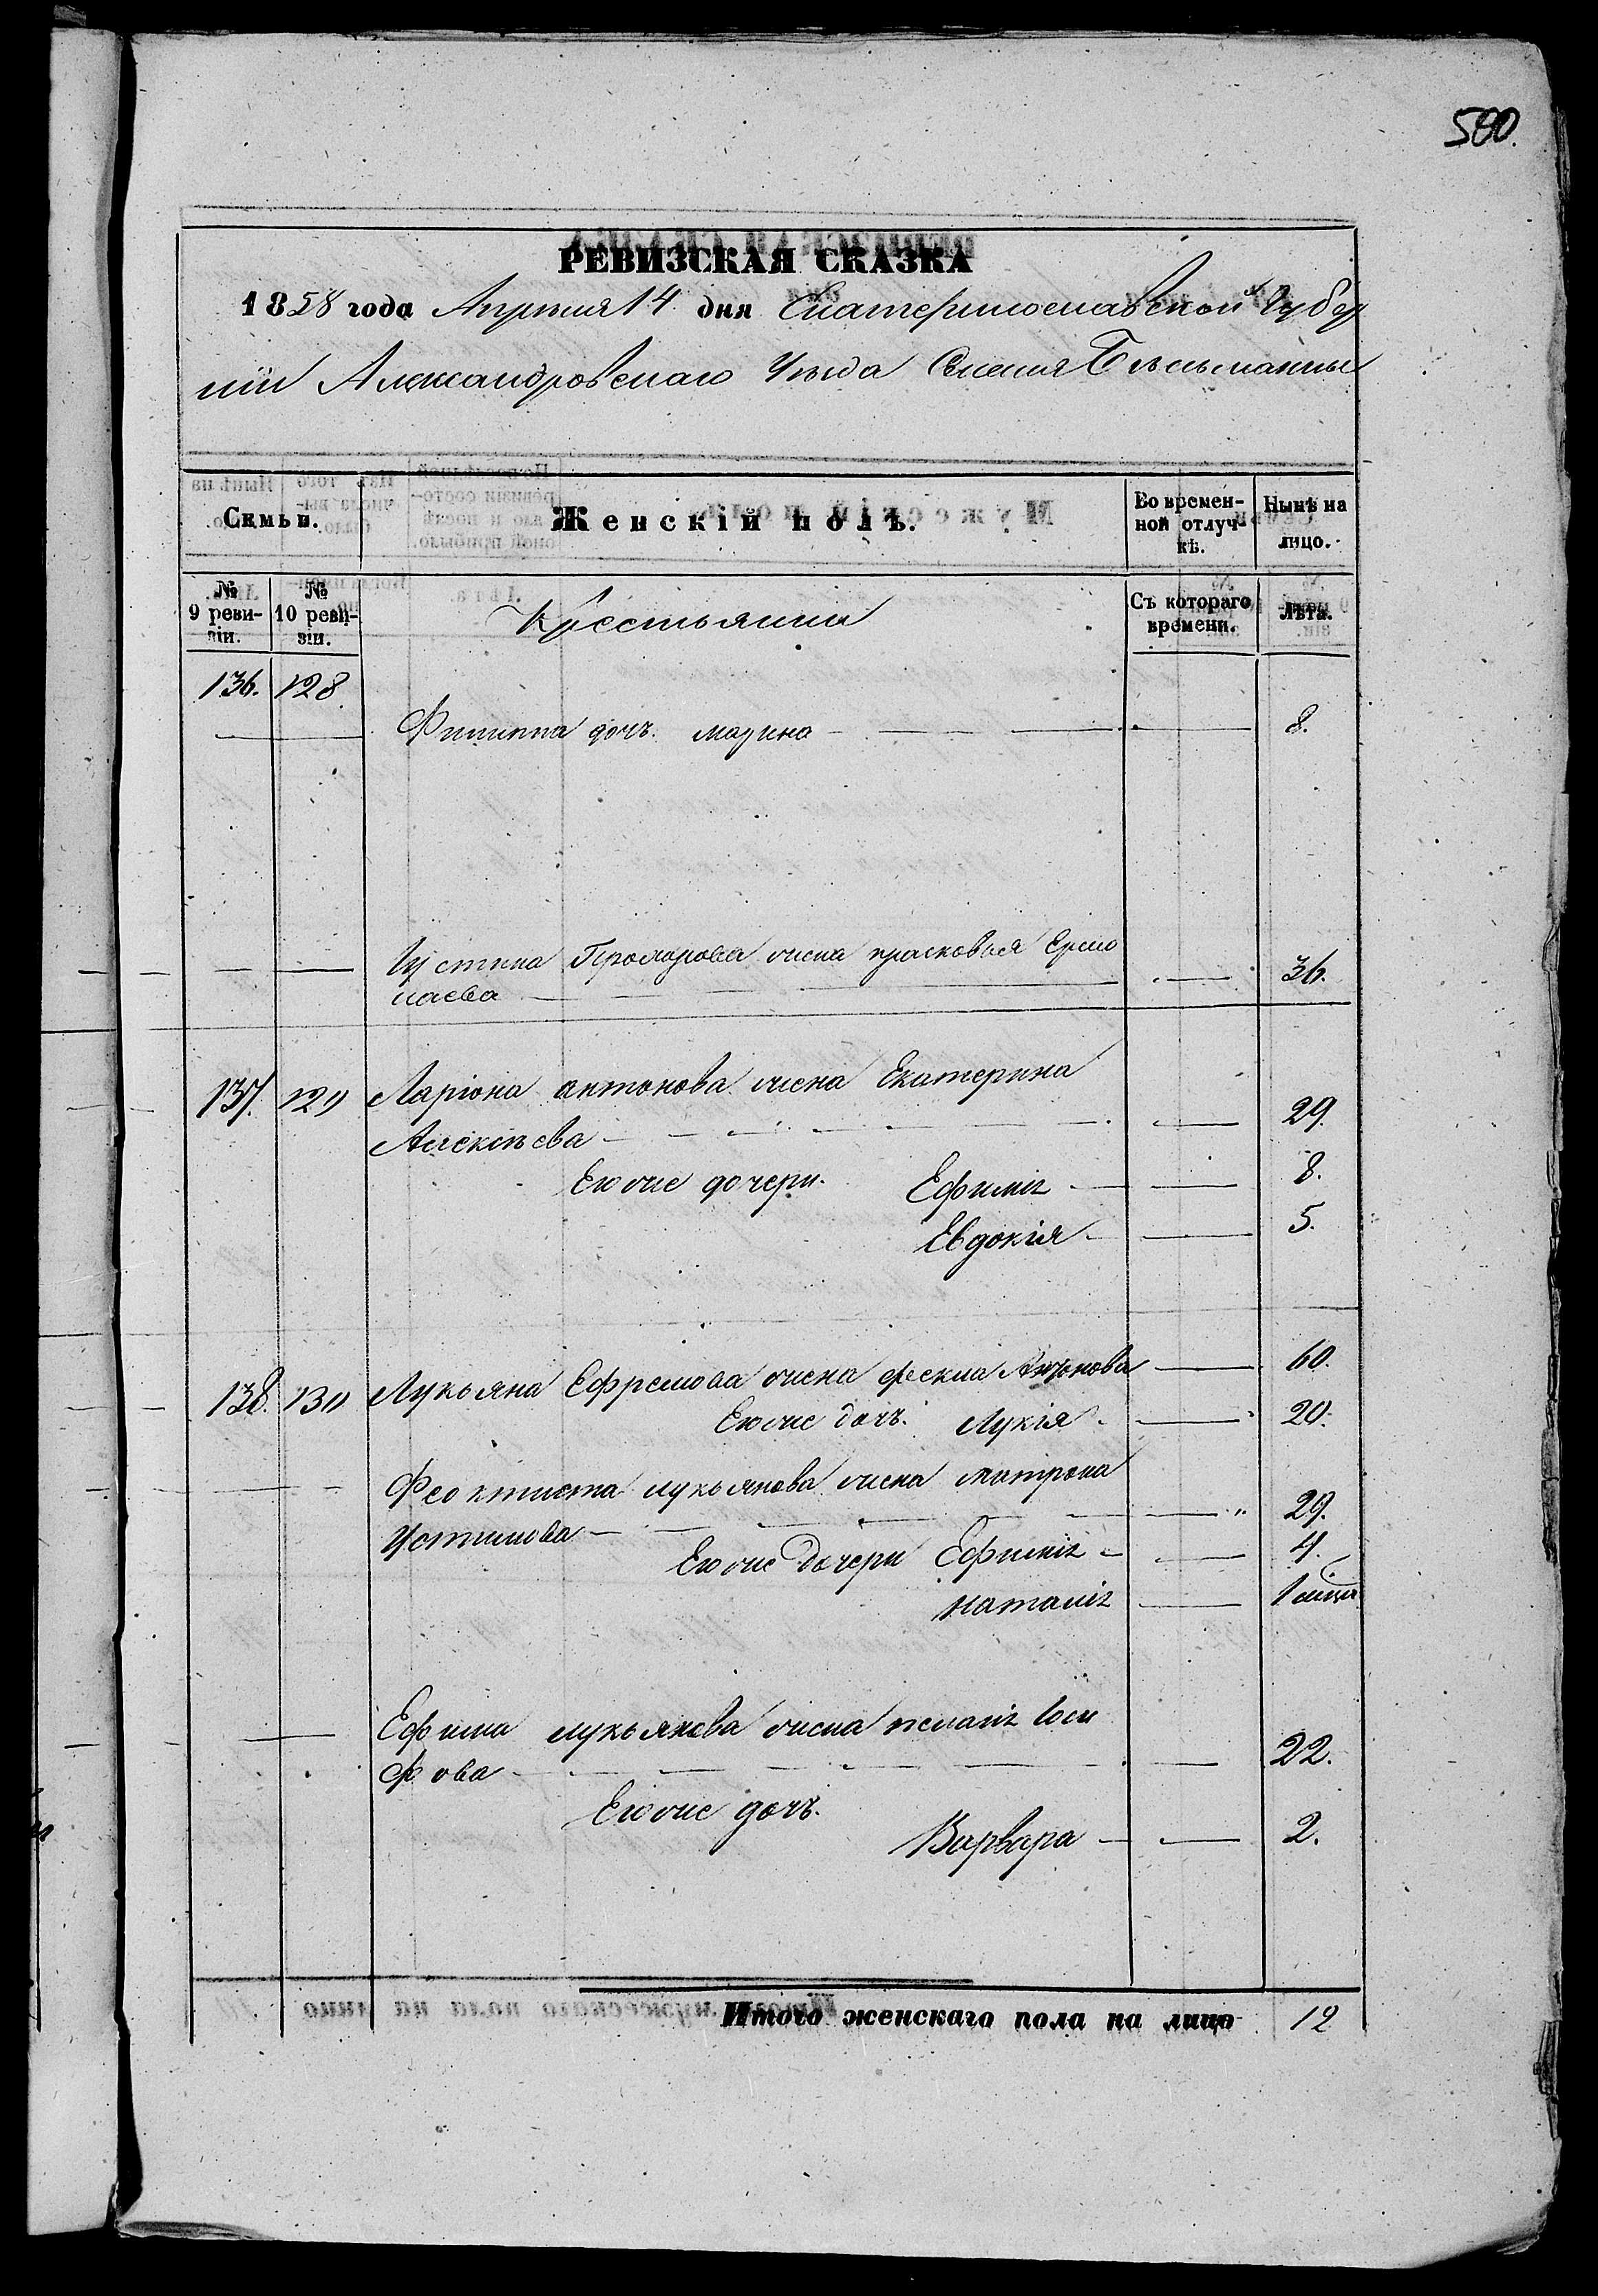 580.
РЕВИЗСКАЯ СКАЗКА
1858 года Апрѣля 14 дня Екатеринославской Губер
ніи Александровскаго Уѣзда Селенія Бѣльманки
Семьи.
Женскій полъ.
Во времен-
ной отлуч-
кѣ.
Нынѣ на
лицо.
№
9 реви-
зіи.
№
10 реви-
зіи.
Крестьяния
Съ котораго
времени.
Лѣта.
136. 128.
Филиппа дочь. марина 8.
Устина жена прасковья Ермо
лаева 36.
137. 129 Ларіона антонова жена Екатерина
Алексѣева 29.
Его же дочери. Ефимія 8.
Евдокія 5.
138. 130 Лукьяна Ефремова жена фекла Антонова 60.
Его же дочь. Лукія 20.
Феоктиста лукьянова жена матрона
Устимова 29.
Его же дочери Ефимія 4.
наталія 1
Ефима лукьянова жена Іоси
фова 22.
Его же дочь.
Варвара 2.
Итого женскаго пола на лицо 12